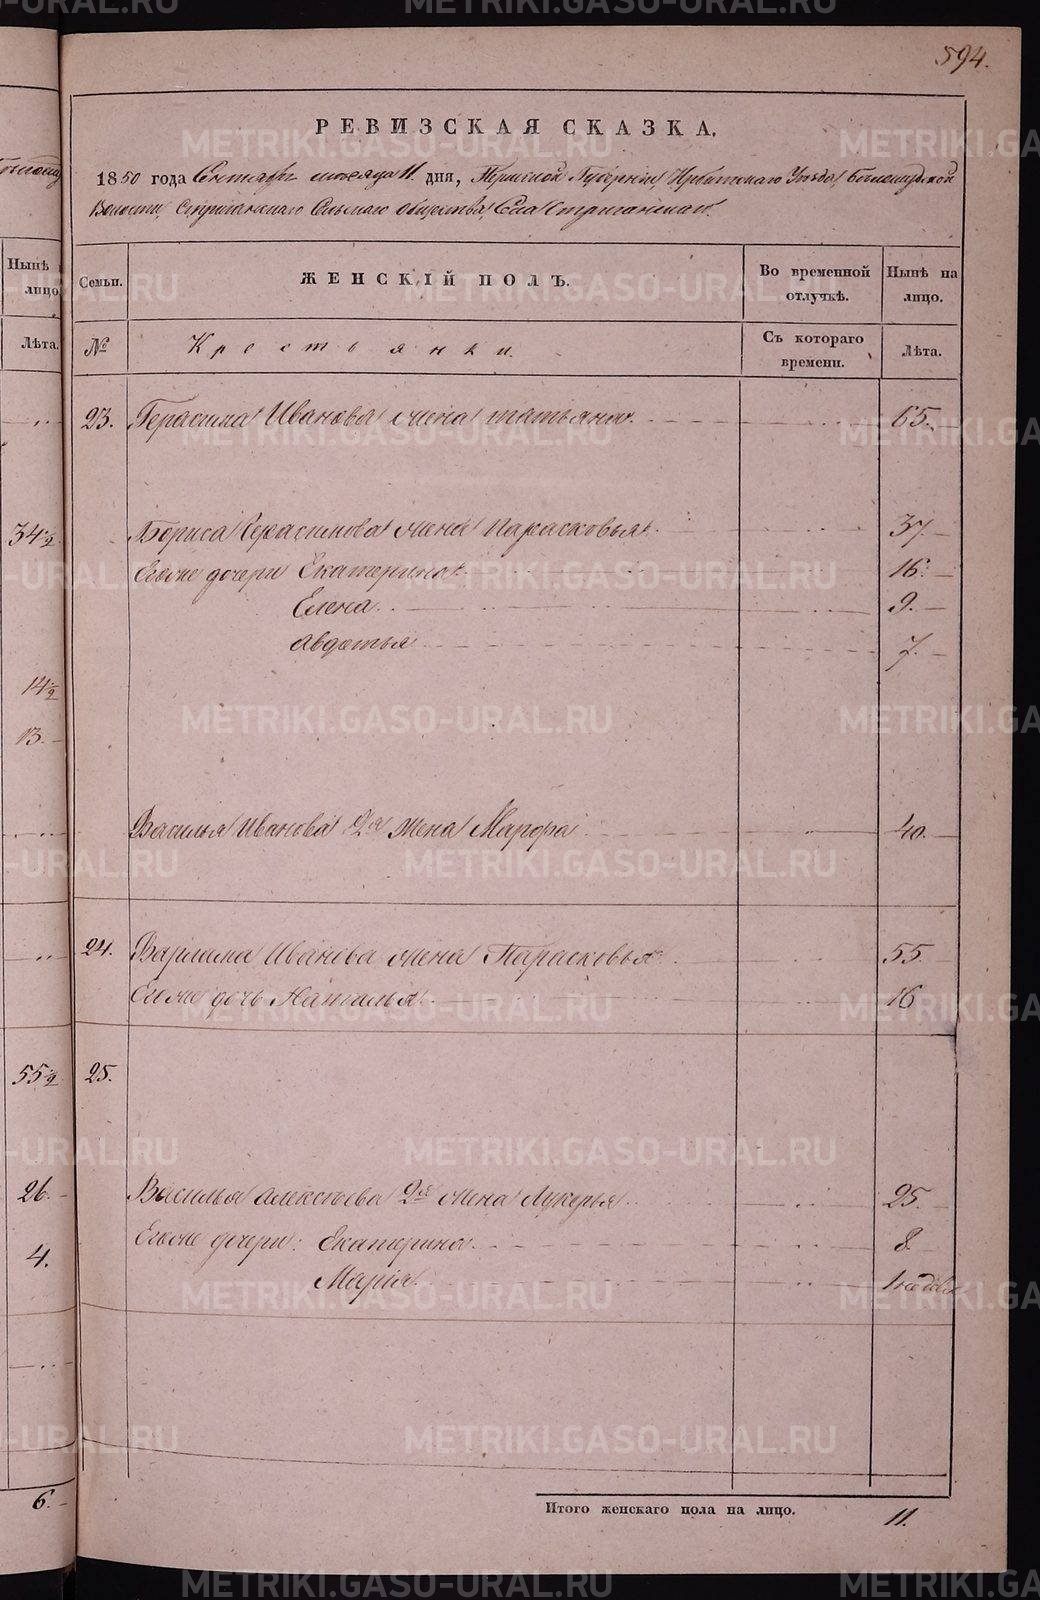 594.
РЕВИЗСКАЯ СКАЗКА.
1850 года Сентября месяца 11. дня, Пермской Губерніи Ирбитскаго Уезда,
Волости, Стриганскаго Сельскаго общества, Села Стриганскаго.
Семьи. ЖЕНСКІЙ ПОЛЪ. Во временной отлучкѣ. Нынѣ на лицо.
№ Крестьянки. Съ котораго времени. Лѣта.
23. Герасима Иванова жена татьяна 65.
Бориса Герасимова жена Парасковья 37.
Егоже дочери Екатерина 16.
Елена 9.
Авдотья 7.
Василья Иванова 2я жена Марфа 40.
24. Иванова жена Парасковья 55
Егоже дочь Наталья 16
25.
Василья алексѣева 2я жена Лукерья 25.
Егоже дочери: Екатерина 8
Марія 1 недѣл
Итого женскаго пола на лицо. 11.
Нынѣ лицо
Лѣта.
34½
14½
13.
55½
26.
4.
6.
METRIKI.GASO-URAL.RU